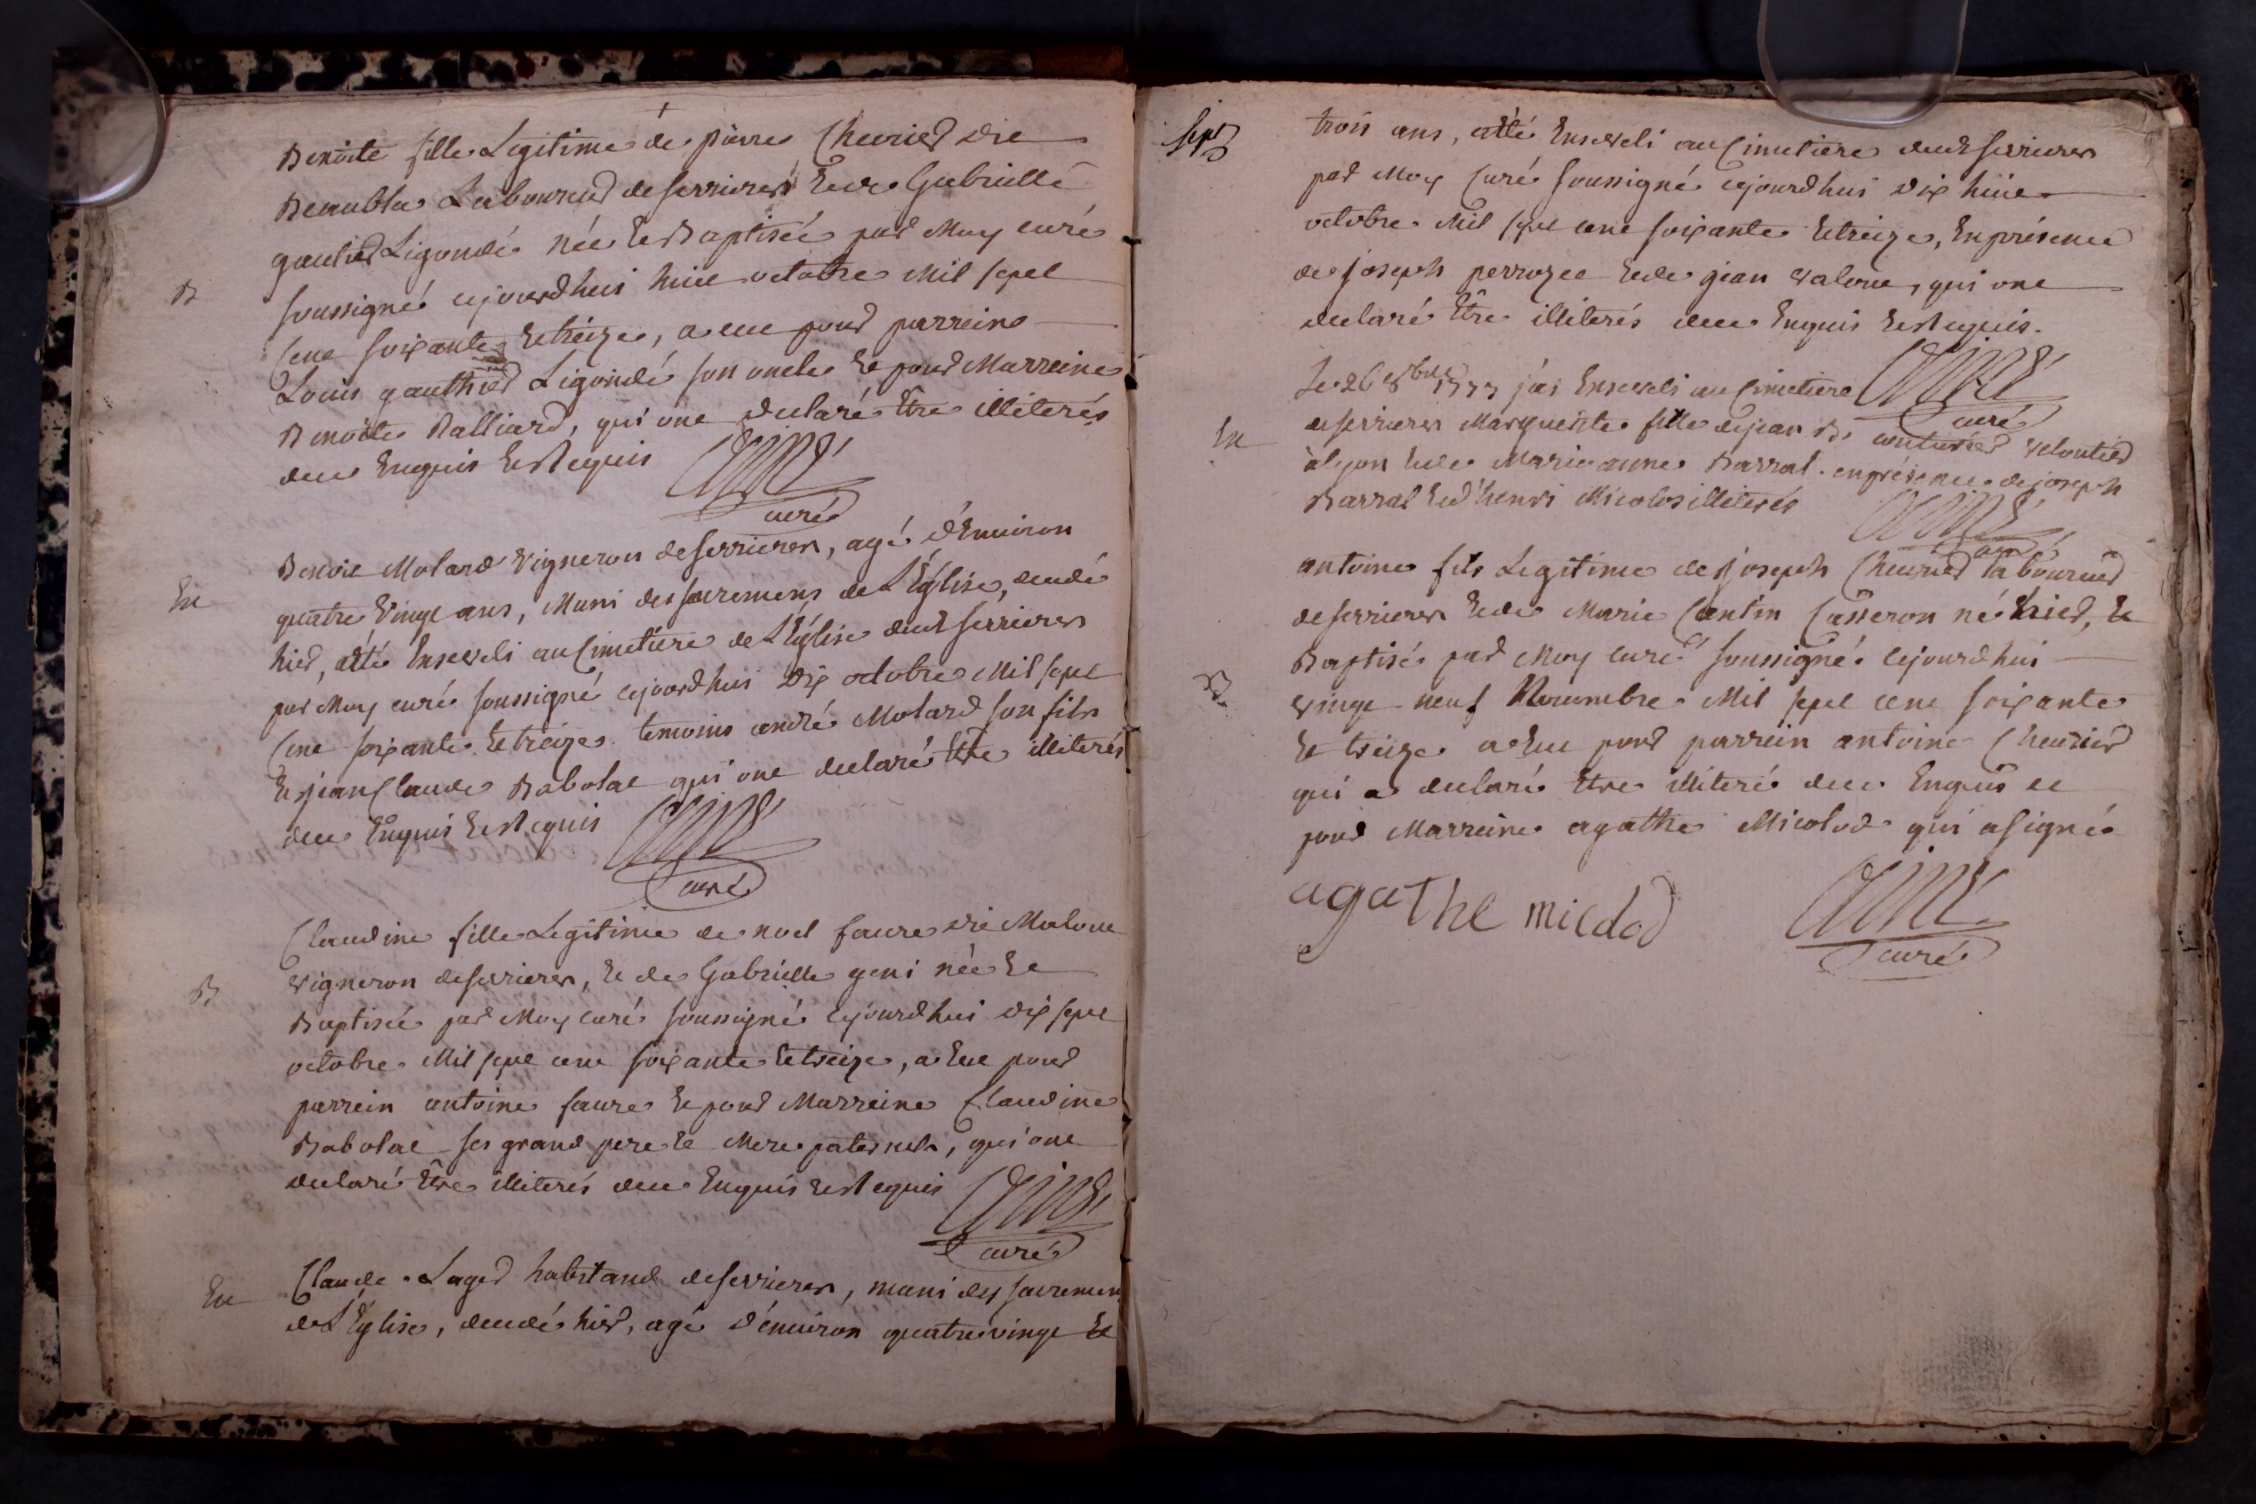 Benoite fille Legitime de pierre Chevrier dit
Beaublac Laboureur de serrieres Et de Gabrielle
gautier Ligondé née Et Baptisée par Moy curé
B
soussigné cejourdhui huit octobre Mil sept
Cent soixante Et treize, a eut pour parrein
Louis gauthier Ligondé son oncle Et pour Marreine
Benoite Ralliard, qui ont declaré Être illiterés
deue Enquis Et Requis
Aimé
curé
Benoit Molard Vigneron de serrieres, agé d'Environ
En
quatre Vingt ans, Muni des sacremens de L'Église, decedé
hier, a été Enseveli au Cimetiere de L'Église dudt serrieres
par Moy curé soussigné cejourdhui dix octobre Mil sept
Cent soixante Et treize temoins andré Molard son fils
Et jean Claude Babolat qui ont declaré Être illiterés
deue Enquis Et Requis
Aimé
curé
Claudine fille Legitime de noel faure dit Matout
Vigneron de serrieres, Et de Gabrielle geni née Et
B
Baptisée par Moy curé soussigné cejourdhui dix sept
octobre Mil sept cent soixante Et treize, a Eut pour
parrein antoine faure Et pour Marreine Claudine
Babolat ses grand pere Et Mere paternels, qui ont
declaré Être illiterés deue Enquis Et Requis
Aimé
curé
Claude Lager habitand de serrieres, muni des sacremen
En
de L'Église, decedé hier, agé d'environ quatre vingt Et
sept
trois ans, a été Enseveli au Cimetiere dudt serrieres
par Moy Curé soussigné cejourdhui dix huit
octobre Mil sept cent soixante Et treize, En présence
de joseph perrozet Et de jean valout, qui ont
declaré Être illiterés deue Enquis Et Requis.
Aimé
curé
Le 26 8bre 1773 j'ai Enseveli au Cimetiere
En
de serrieres Marguerite fille de jean B. couturier veloutier
à lyon Et de Marie anne Barral. en présence de joseph
Barral Et d'henri Micolos illiterés
Aimé
curé
antoine fils Legitime de joseph Chevrier laboureur
de serrieres Et de Marie Cantin Casseron né hier, Et
Baptisé par Moy curé soussigné cejourdhui
B
vingt neuf Novembre Mil sept cent soixante
Et treize a Eut pour parrein antoine Chevrier
qui a declaré Être illiteré deue Enquis et
pour Marreine agathe Micolod qui a signé
agathe micolod
Aimé
curé